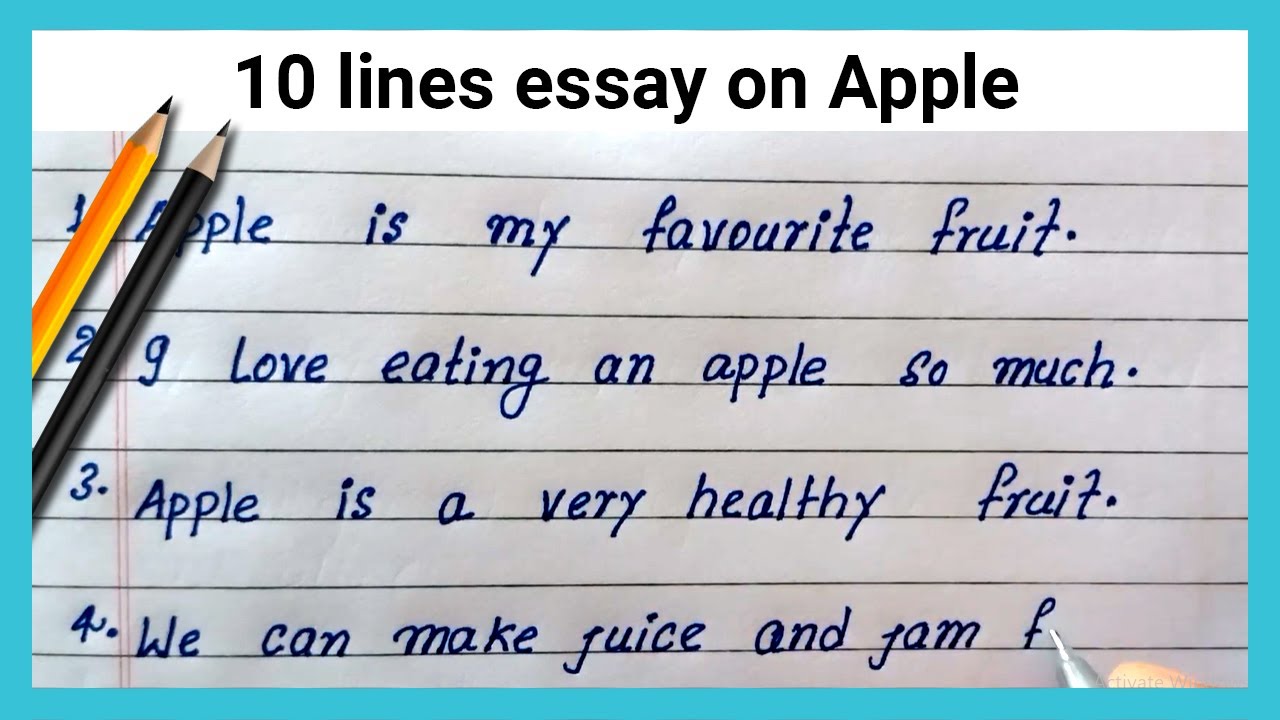 10 lines essay on Apple
1. Apple is my favourite fruit.
2. I Love eating an apple so much.
3. Apple is a very healthy fruit.
4. We can make juice and jam f
Activate Wi